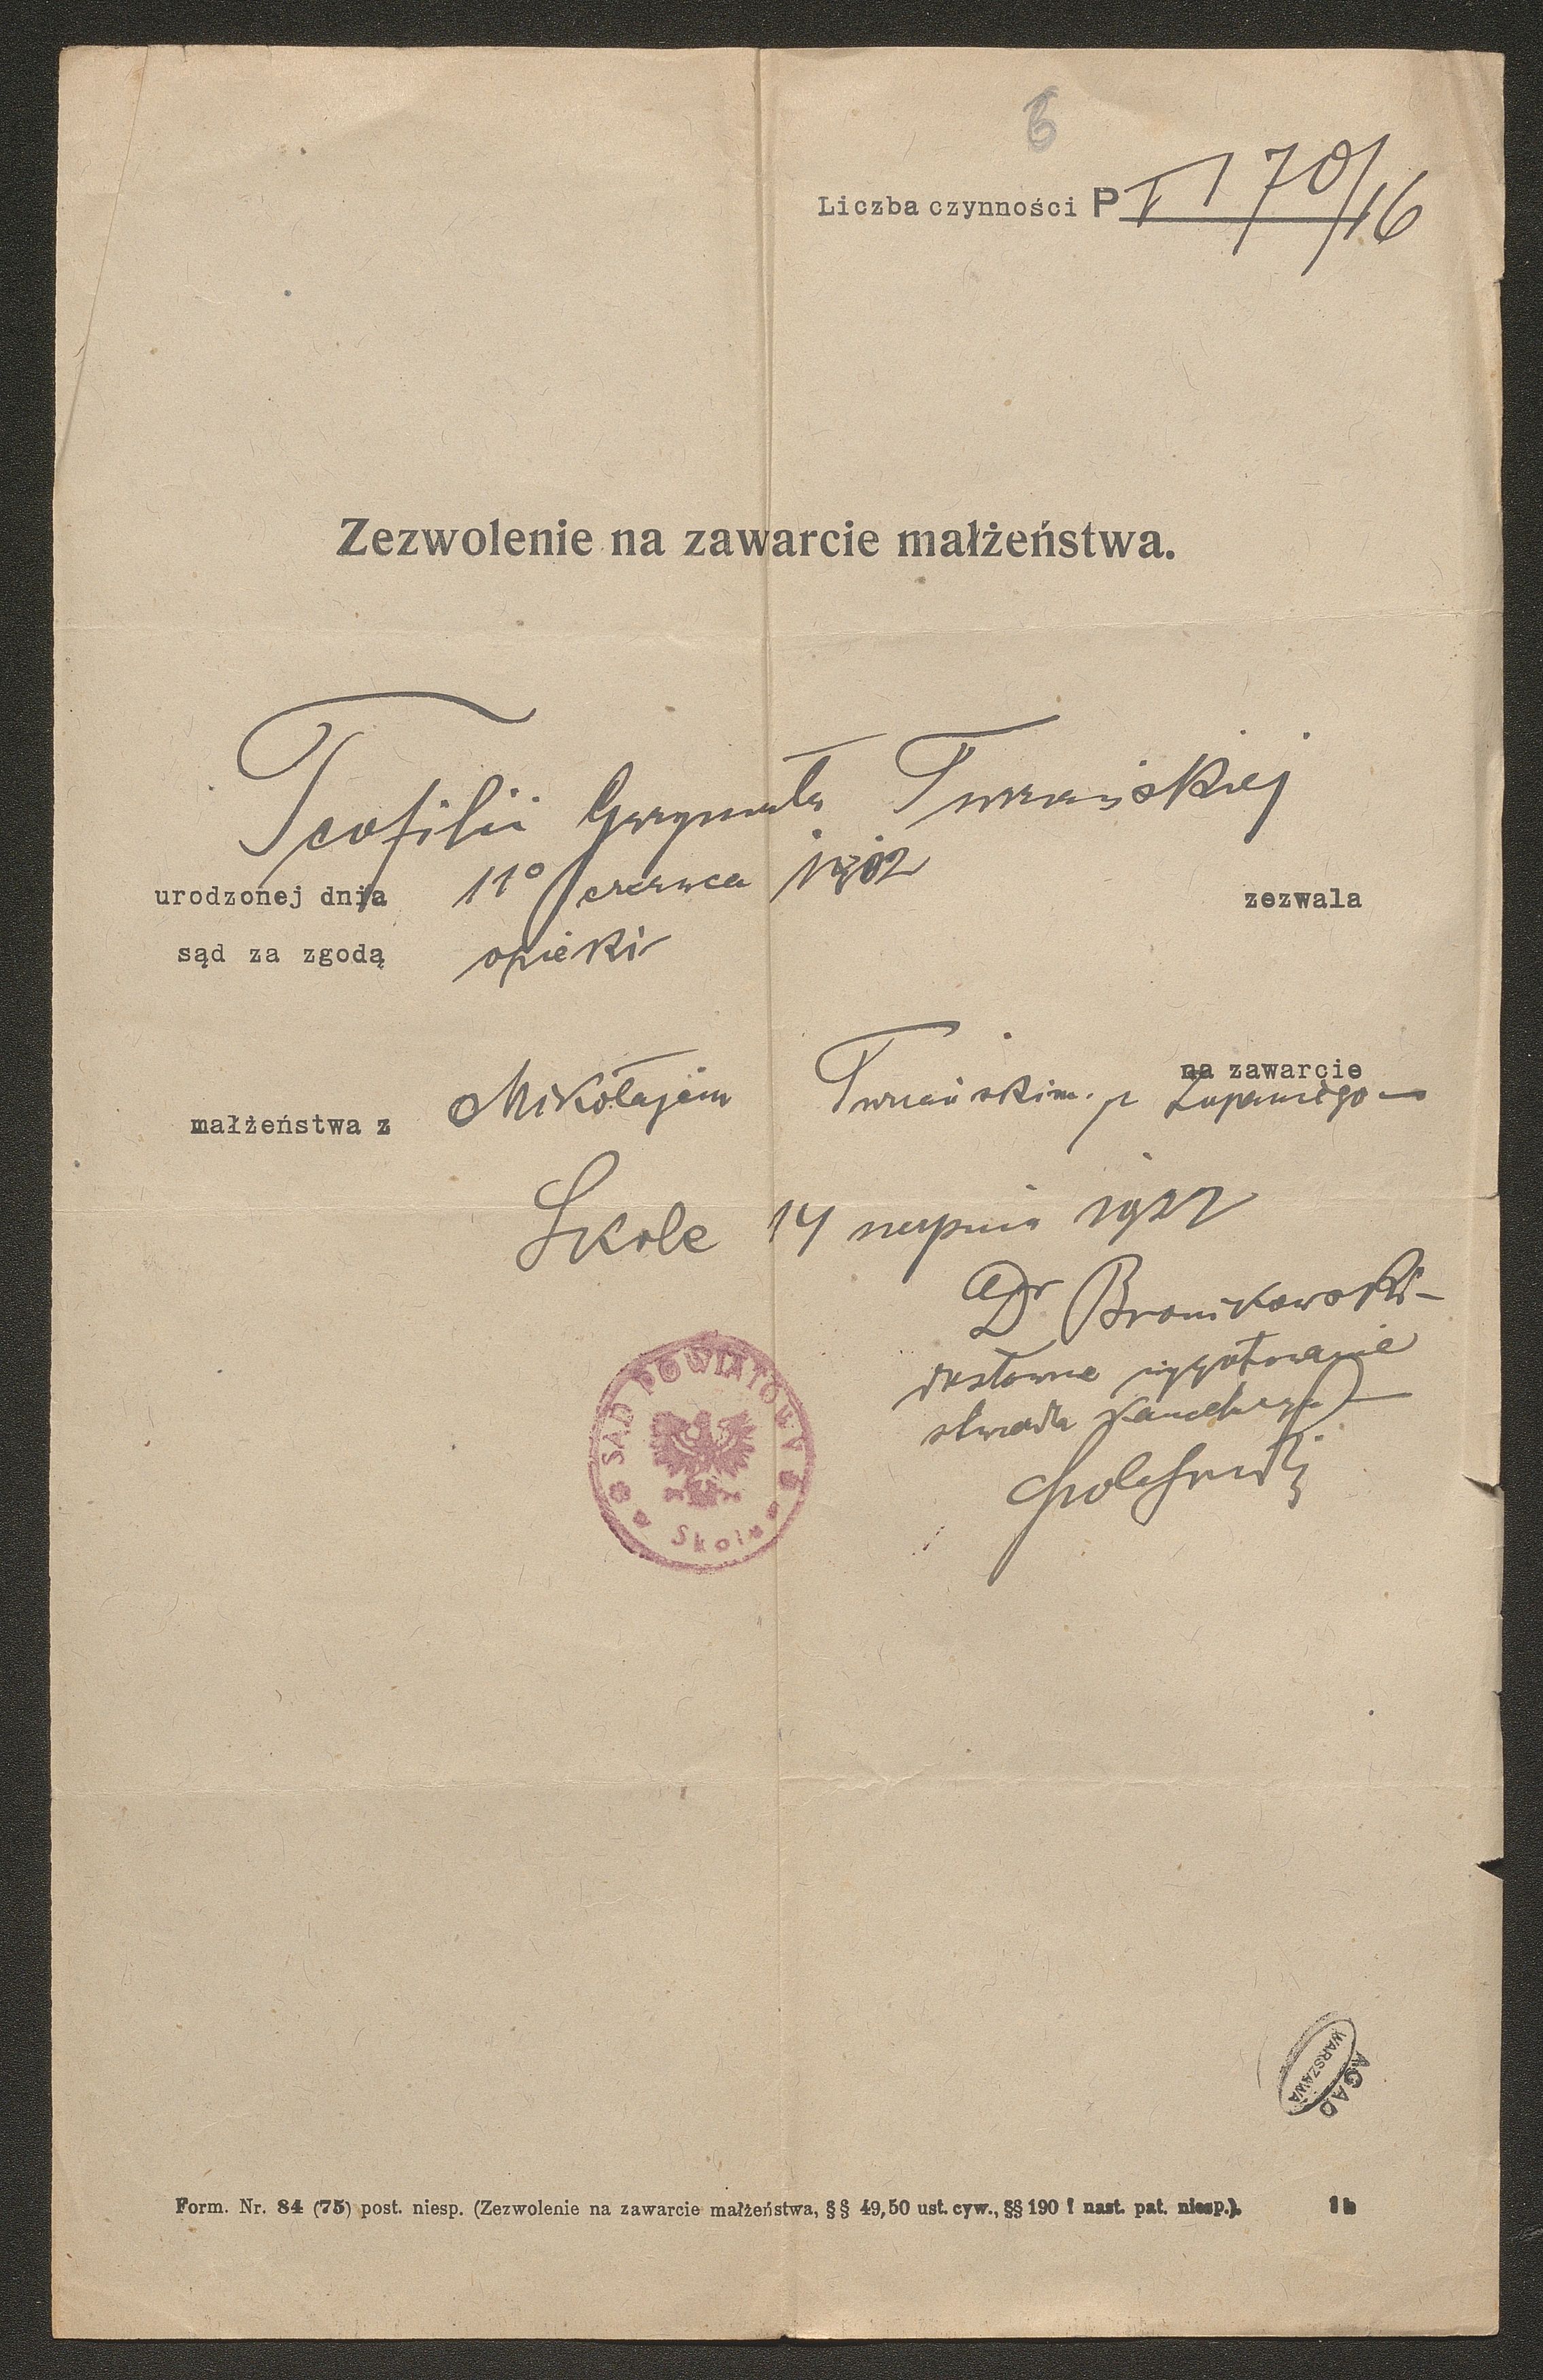 6
Liczba czynności P I 170/16
Zezwolenie na zawarcie małżeństwa.
Teofilii Turzańskiej
urodzonej dnia 11º czerwca 1902 zezwala
sąd za zgodą opieki
na zawarcie
małżeństwa z Mikołajem
Skole 14 sierpnia 1922
Dr Bronikowski
dosłowne wygotowanie
stwierdza
SĄD POWIATOWY
Skole
AGAD
WARSZAWA
Form. Nr. 84 (75) post. niesp. (Zezwolenie na zawarcie małżeństwa, §§ 49,50 ust. cyw., §§ 190 i nast. pat. niesp.). 1b